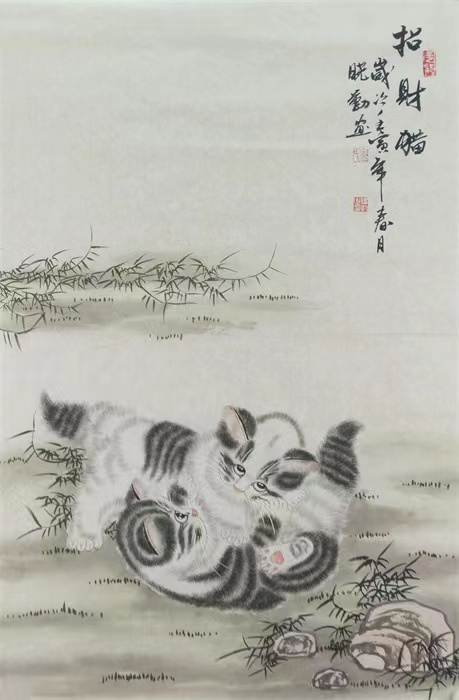 招財猫
歲次壬寅年春月
晓勤画